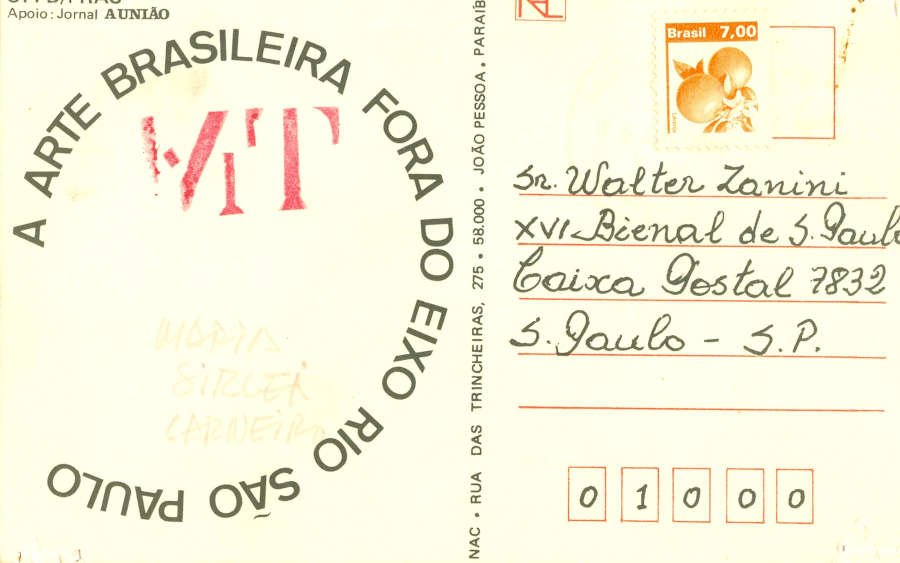 Apoio: Jornal A UNIÃO
A ARTE BRASILEIRA FORA DO EIXO RIO SÃO PAULO
MARIA
SIRLEI
CARNEIRO
NAC • RUA DAS TRINCHEIRAS, 275 • 58.000 • JOÃO PESSOA • PARAÍB
Brasil 7,00
Sr. Walter Zanini
XVI Bienal de S. Paulo
Caixa Postal 7832
S. Paulo - S.P.
0 1 0 0 0